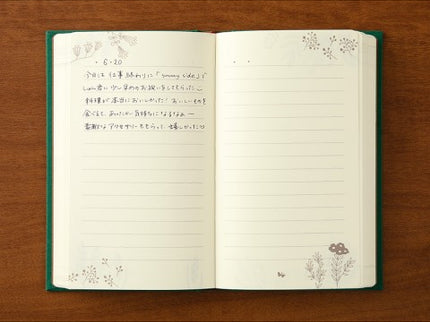 8・20
今日は 仕事 終わりに「sunny side」で
Luluさんに 少し早めの お祝いをしてもらった〜
料理が 本当に おいしかった！ おいしいものを
食べると、あったかい 気持ちになるなぁ〜
素敵な アクセサリーをもらって 嬉しかった♡